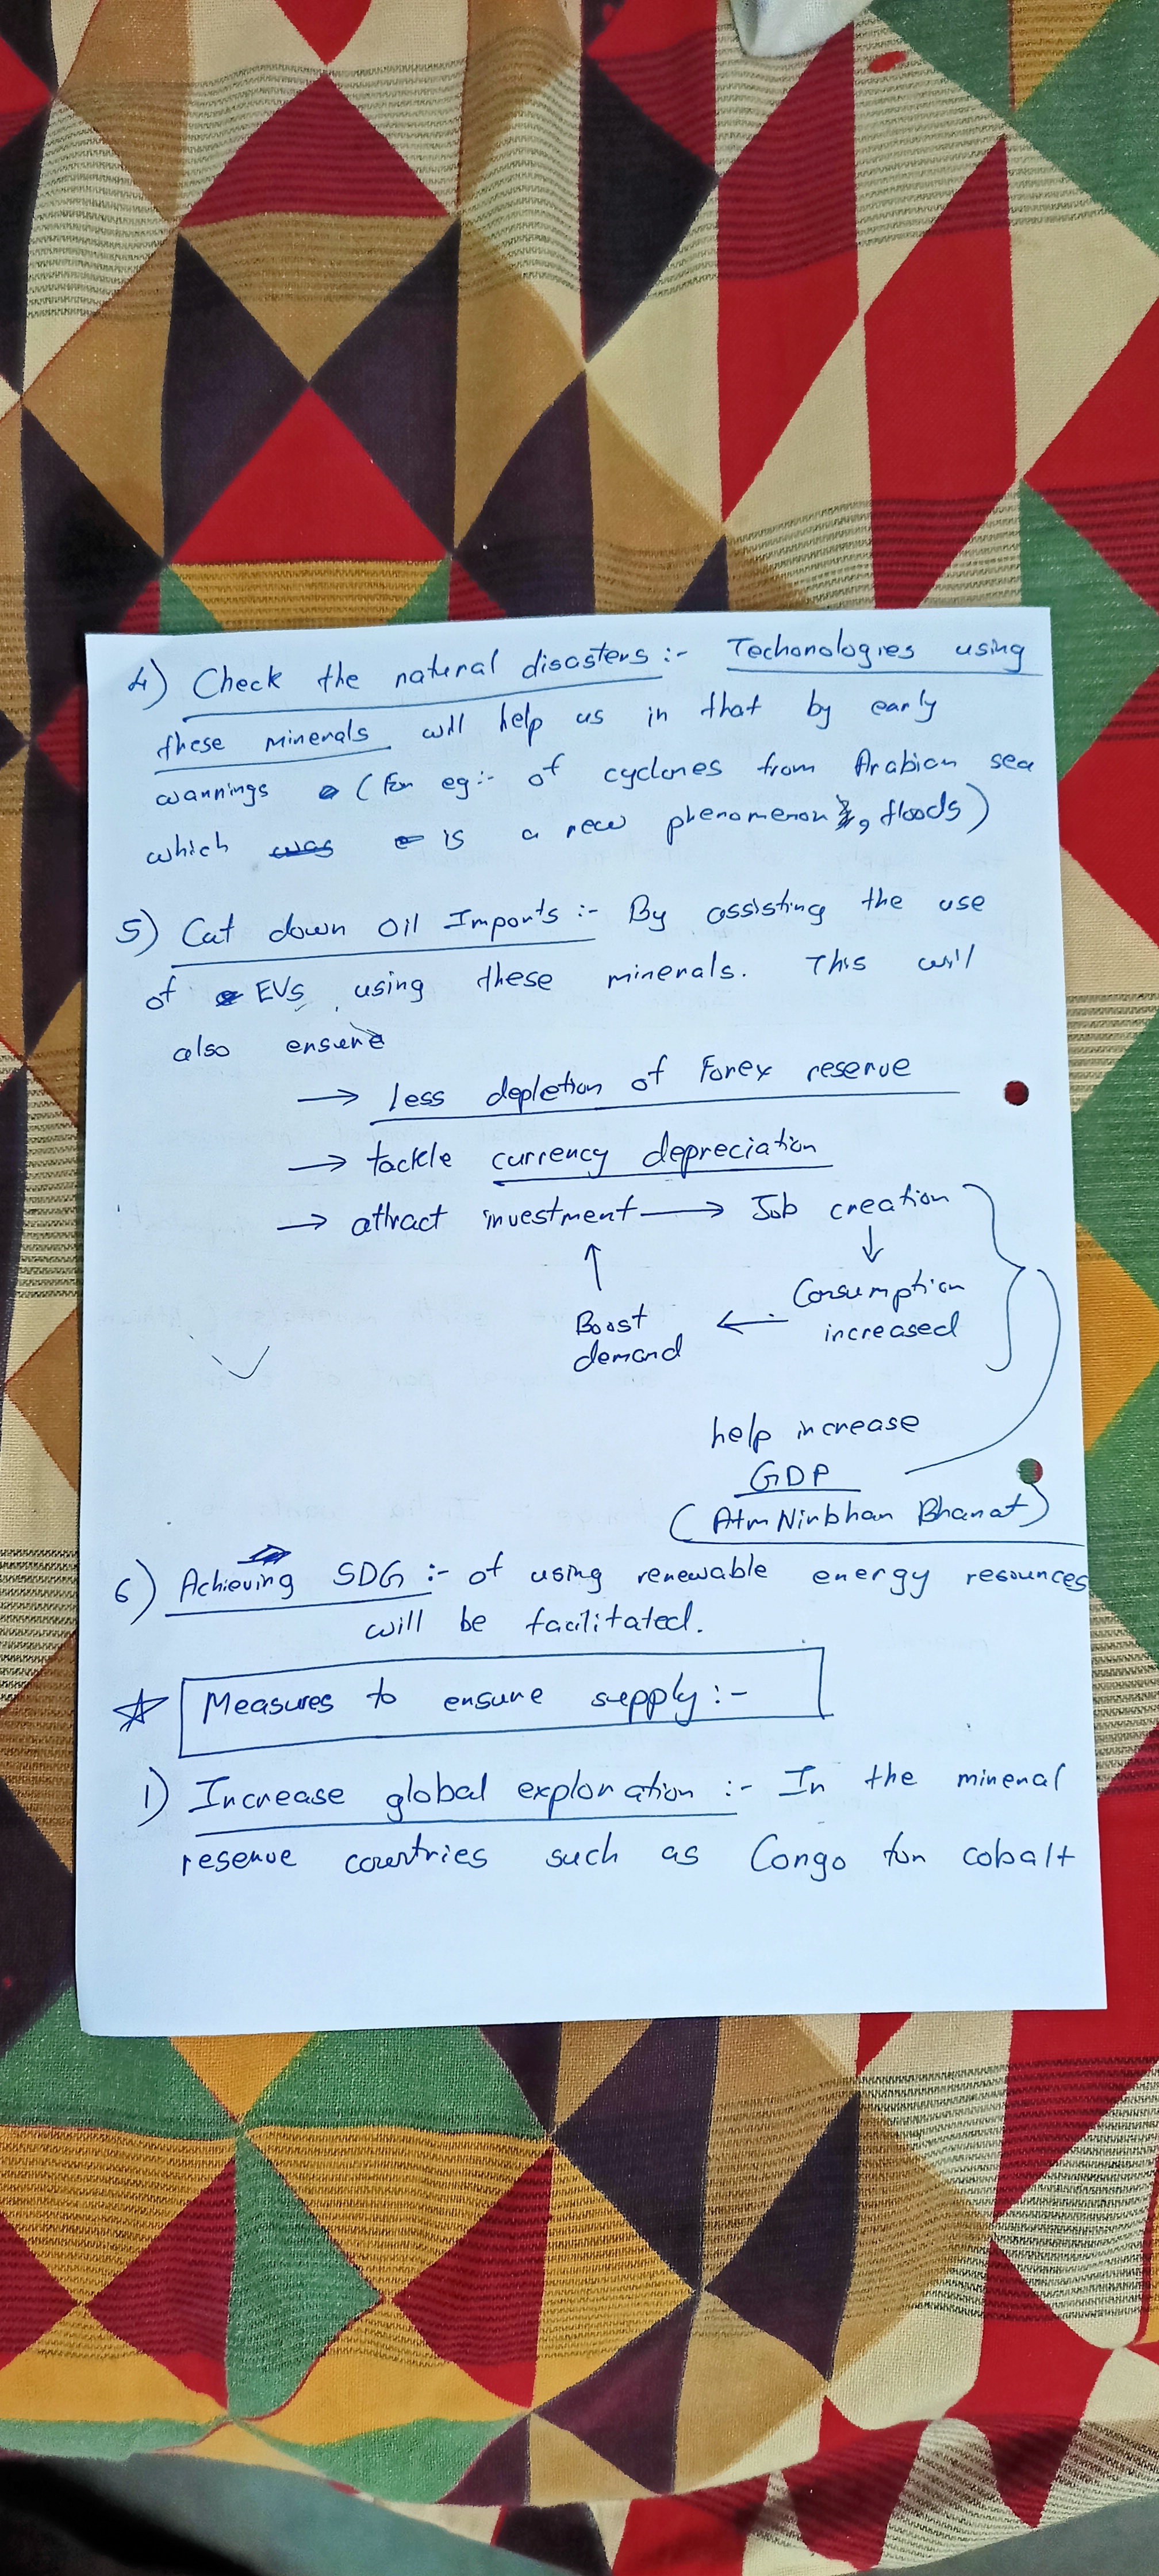 4) Check the natural disasters :- Techonologies using
these minerals will help us in that by early
warnings (For eg:- of cyclones from Arabian sea
which was is a new phenomenon, floods)
5) Cut down Oil Imports :- By assisting the use
of EVs using these minerals. This will
also ensure
→ less depletion of Forex reserve
→ tackle currency depreciation
→ attract investment → Job creation
↓
Consumption
increased
←
Boost
demand
↑
help increase
GDP
(Atm Nirbhar Bharat)
6) Achieving SDG :- of using renewable energy resources
will be facilitated.
☆ Measures to ensure supply :-
1) Increase global exploration :- In the mineral
reserve countries such as Congo for cobalt